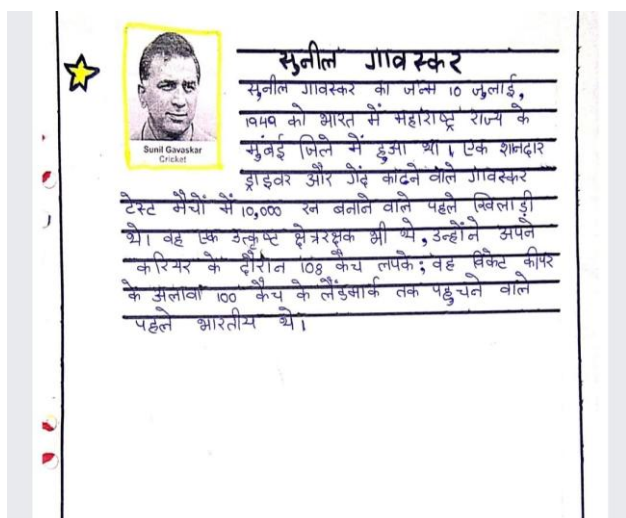 सुनील गावस्कर
Sunil Gavaskar
Cricket
सुनील गावस्कर का जन्म 10 जुलाई,
1949 को भारत में महाराष्ट्र राज्य के
मुंबई जिले में हुआ था। एक शानदार
ड्राइवर और गेंद काटने वाले गावस्कर
टेस्ट मैचों में 10,000 रन बनाने वाले पहले खिलाड़ी
थे। वह एक उत्कृष्ट क्षेत्ररक्षक भी थे, उन्होंने अपने
करियर के दौरान 108 कैच लपके; वह विकेट कीपर
के अलावा 100 कैच के लैंडमार्क तक पहुचने वाले
पहले भारतीय थे।